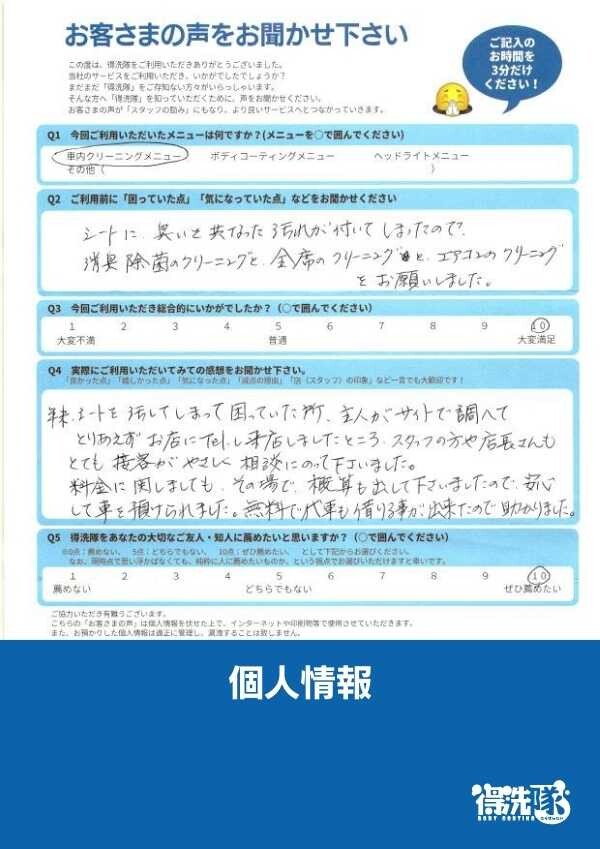 お客さまの声をお聞かせ下さい
ご記入の
お時間を
3分だけ
ください！
この度は、得洗隊をご利用いただきありがとうございました。
当社のサービスをご利用いただき、いかがでしたでしょうか？
まだまだ「得洗隊」をご存知ない方々がいらっしゃいます。
そんな方へ「得洗隊」を知っていただくために、声をお聞かせください。
お客さまの声が「スタッフの励み」にもなり、より良いサービスへとつながっていきます。
Q1 今回ご利用いただいたメニューは何ですか？(メニューを○で囲んでください)
車内クリーニングメニュー ボディコーティングメニュー ヘッドライトメニュー
その他（ ）
Q2 ご利用前に「困っていた点」「気になっていた点」などをお聞かせください
シートに、臭いと共なった汚れが付いてしまったので、
消臭除菌のクリーニングと、全席のクリーニングと、エアコンのクリーニング
をお願いしました。
Q3 今回ご利用いただき総合的にいかがでしたか？（○で囲んでください）
1 2 3 4 5 6 7 8 9 10
大変不満 普通 大変満足
Q4 実際にご利用いただいてみての感想をお聞かせ下さい。
「良かった点」「嬉しかった点」「気になった点」「減点の理由」「店（スタッフ）の印象」など一言でも大歓迎です！
シートを汚してしまって困っていた所、主人がサイトで調べて
とりあえずお店にTelし来店しましたところ、スタッフの方や店長さんも
とても接客がやさしく相談にのって下さいました。
料金に関しましても、その場で、概算も出して下さいましたので、安心
して車を預けられました。無料で代車も借りる事が出来たので助かりました。
Q5 得洗隊をあなたの大切なご友人・知人に薦めたいと思いますか？（○で囲んでください）
※0点：薦めない、 5点：どちらでもない、 10点：ぜひ薦めたい、 として下記からお選びください。
なお、現時点で思い浮かばなくても、純粋に人に薦めたいものか、という視点でお選びいただけますと幸いです。
1 2 3 4 5 6 7 8 9 10
薦めない どちらでもない ぜひ薦めたい
ご協力いただき有難うございます。
こちらの「お客さまの声」は個人情報を伏せた上で、インターネットや印刷物等で使用させていただきます。
また、お預かりした個人情報は適正に管理し、漏洩することは致しません。
個人情報
得洗隊
BODY COATING